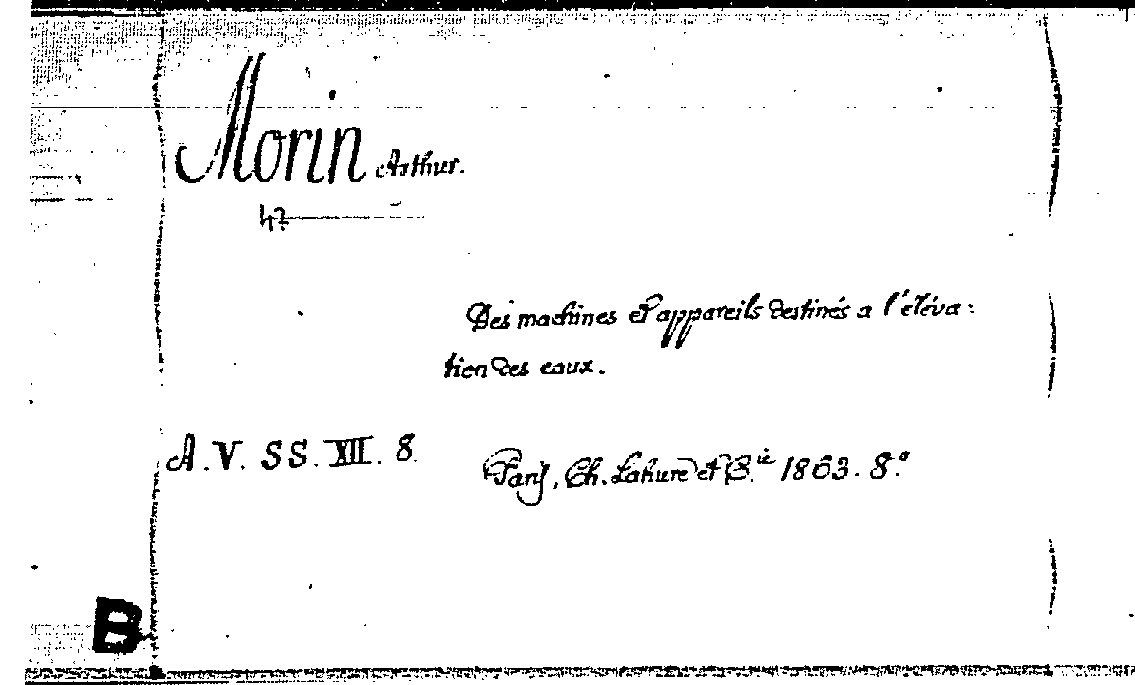 Morin Arthur.
47
Des machines et appareils destinés a l'éléva:
tion des eaux.
A. V. SS. XII. 8.
Parij, Ch. Lahure et C.ie 1863. 8.º
B